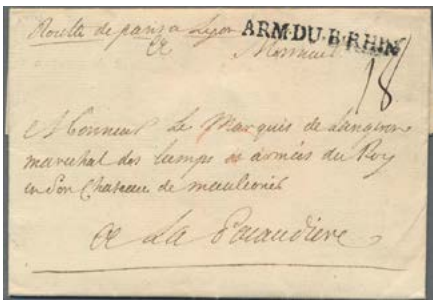 Routte de paris a Lyon ARM·DU·B·RHIN
A Monsieur
18
Monsieur Le Marquis de Langeron
marechal des Camps et armées du Roy
en Son Chateau de
A La Pacaudiere